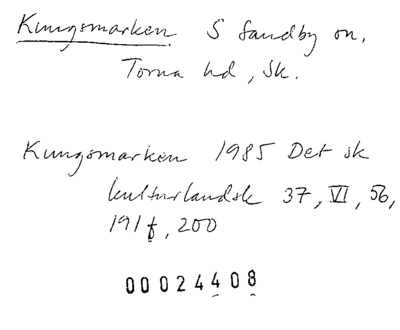 Kungsmarken S Sandby sn,
Torna hd, Sk.
Kungsmarken 1985 Det sk
kulturlandsk 37, VI, 56,
191f, 200
00024408